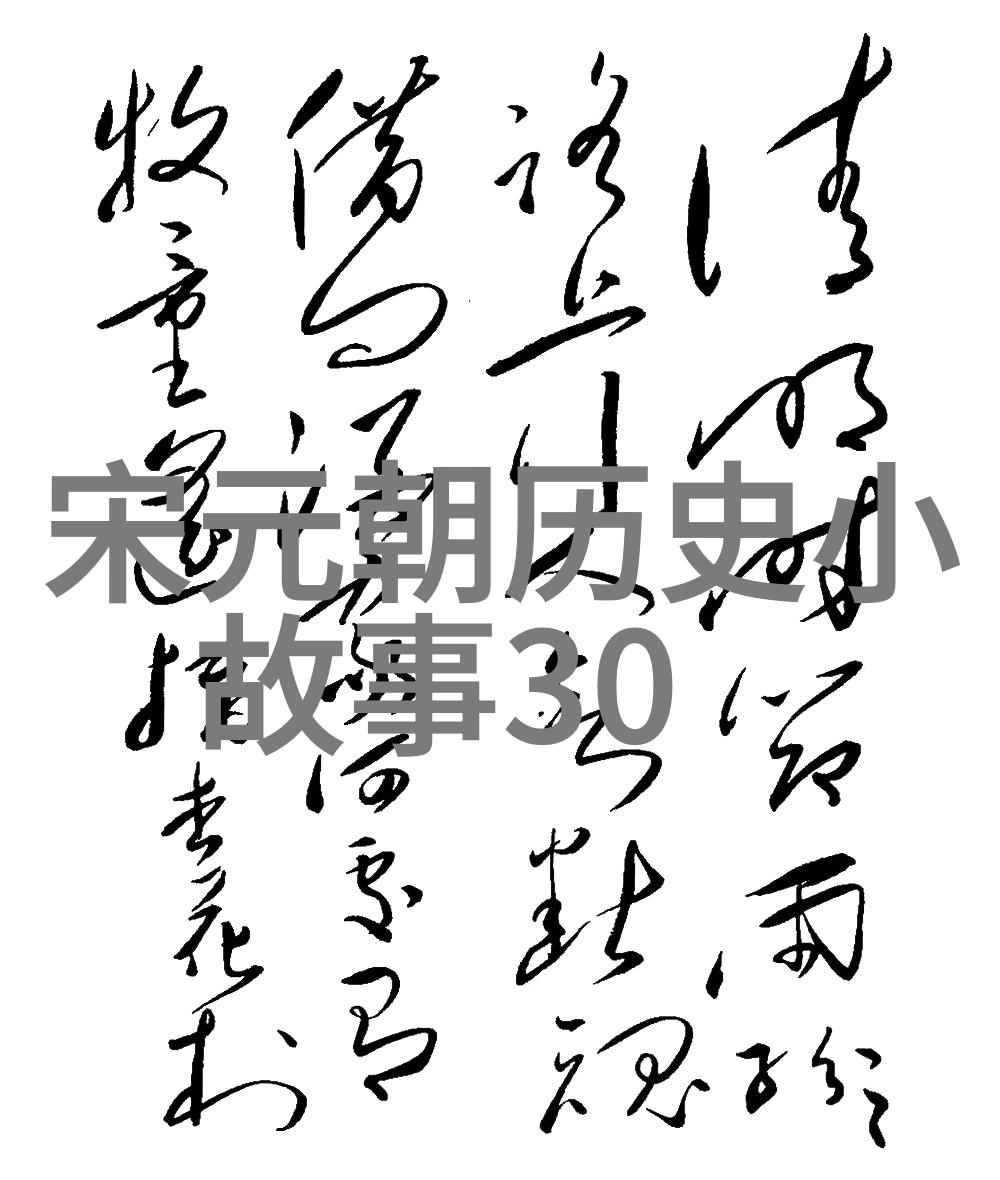 清明时节雨纷纷
路上行人欲断魂
借问酒家何处有
牧童遥指杏花村
宋元朝历史小
故事30